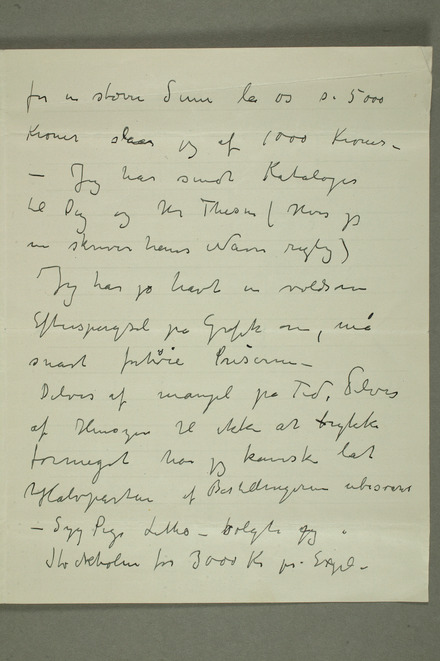 for en større Sum la os s. 5000
Kroner slaar jeg af 1000 Kroner –
– Jeg har sendt Kataloger
til Dig og Hr Thesen (Hvis jeg
nu skriver hans Navn rigtig)
Jeg har jo havt en voldsom
Efterspørgsel på Grafik nu, må
snart forhøie Priserne –
Delvis af mangel på Tid, Delvis
af Hensyn til ikke at trykke
formeget har jeg kanske lat
Halvparten af Bestillingerne ubesvaret
– Syg Pige Litho – solgte jeg i
Stockholm for 3000 Kr pr. Expl –